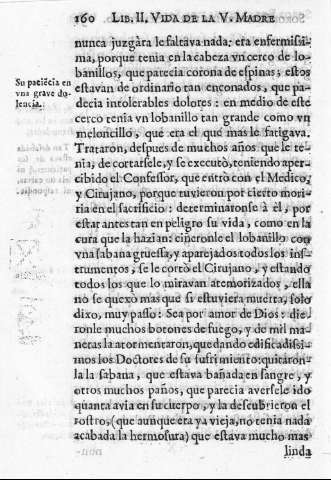 160 LIB. II. VIDA DE LA V. MADRE
nunca juzgàra le faltava nada: era enfermissi-
ma, porque tenia en la cabeza vn cerco de lo-
banillos, que parecia corona de espinas; estos
estavan de ordinario tan enconados, que pa-
decia intolerables dolores: en medio de este
cerco tenia vn lobanillo tan grande como vn
meloncillo, què era el que mas le fatigava.
Trataron, despues de muchos años que le te-
nia, de cortarsele, y se executò, teniendo aper-
cibido el Confessor, que entrò con el Medico,
y Cirujano, porque tuvieron por cierto mori-
ria en el sacrificio: determinaronse à èl, por
estar antes tan en peligro su vida, como en la
cura que la hazian: ciñeronle el lobanillo con
vna sabana gruessa, y aparejados todos los ins-
trumentos, se le cortò el Cirujano, y estando
todos los que lo miravan atemorizados, ella
no se quexò mas que si estuviera muerta, solo
dixo, muy passo: Sea por amor de Dios: die-
ronle muchos botones de fuego, y de mil ma-
neras la atormentaron, quedando edificadissi-
mos los Doctores de su sufrimiento: quitaron-
la la sabana, que estava bañada en sangre, y
otros muchos paños, que parecia aversele ido
quanta avia en su cuerpo, y la descubrieron el
rostro, (que aunque era ya vieja, no tenia nada
acabada la hermosura) que estava mucho mas
linda
Su paciẽcia en
vna grave do-
lencia.